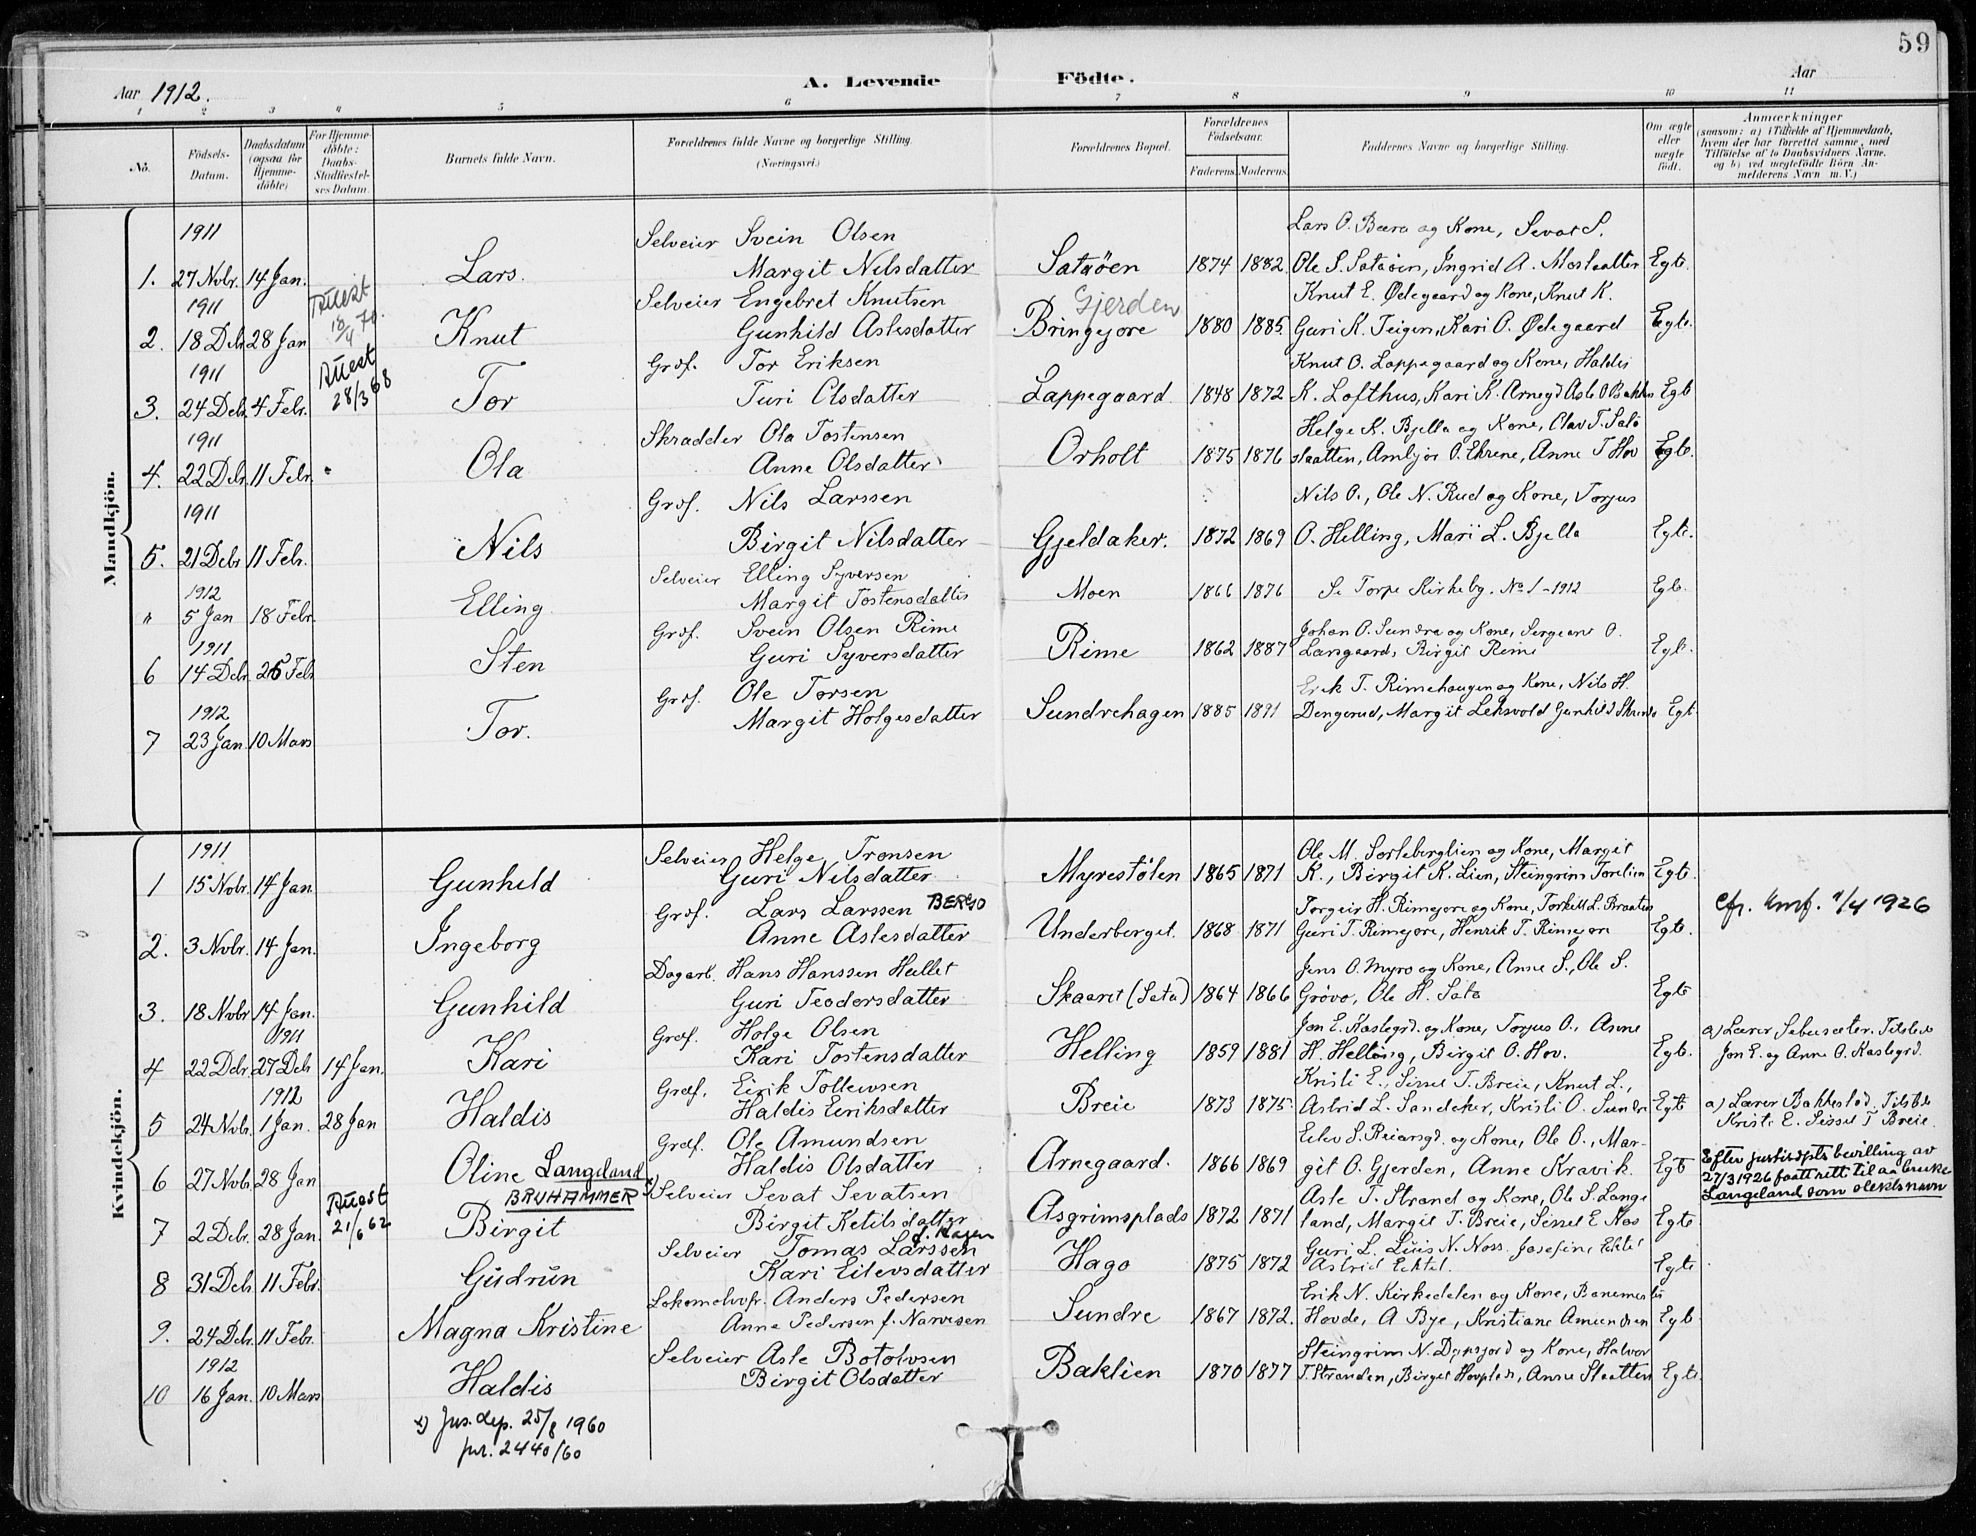 59
Aar 1912.
A. Levende Födte.
Aar
1 2 3 4 5 6 7 8 9 10 11
No.
Födsels-Datum.
Daabsdatum (ogsaa for Hjemme-döbte)
For Hjemme-döbte: Daabs-Stadfæstel-ses Datum.
Barnets fulde Navn.
Forældrenes fulde Navne og borgerlige Stilling. (Næringsvei.)
Forældrenes Bopæl.
Forældrenes Födselsaar.
Faderens. Moderens.
Faddernes Navne og borgerlige Stilling.
Om ægte eller uægte födt.
Anmærkninger
(saasom: a) i Tilfælde af Hjemmedaab,
hvem der har forrettet samme, med
Tilföielse af to Daabsvidners Navne.
og b) ved uægtefödte Börn An-
melderens Navn m. V.)
Mandkjön.
1911 Selveier Svein Olsen Lars O. Bæra og Kone, Sevat S.
1. 27 Nvbr. 14 Jan. Lars. Margit Nilsdatter Sataöen 1874 1882 Ole S. Sataöen, Ingrid A. Moslaatter Egte.
1911 Attest 18/4 Selveier Engebret Knutsen Gjerden Knut E. Ødegaard og Kone, Knut K.
2. 18 Debr 28 Jan Knut Gunhild Aslesdatter Bringejore 1880 1885. Guri K. Teigen, Kari O. Ødegaard Egte.
1911 Attest 28/3 68 Grdf. Tor Eriksen Knut O. Lappegaard og Kone, Haldis
3. 24 Debr. 4 Febr. Tor Turi Olsdatter Lappegaard 1848 1872 K. Lofthus, Kari K. Arnegd Asle O Bakken Egte
1911 Skradder Ola Tostensen Helge K. Bjella og Kone, Olav T. Sato
4. 22 Debr. 11 Febr. Ola Anne Olsdatter Orholt 1875 1876 slaatten, Ambjør O. Ehrene, Anne T Hov Egte.
1911 Grdf. Nils Larssen Nils O., Ole N. Rud og Kone, Torjus
5. 21 Debr 11 Febr. Nils Birgit Nilsdatter Gjeldaker. 1872 1869 O. Helling, Mari L. Bjella Egte.
1912 Selveier Elling Syversen
" 5 Jan 18 Febr. Elling. Margit Tostensdatter Moen 1866 1876 Se Torpe Kirkeby. No 1 - 1912 Egte.
1911 Grdf. Svein Olsen Rime Johan O. Sundre og Kone, Sergeant O.
6 14 Debr. 25 Febr Sten Guri Syversdatter Rime 1862 1887 Langaard, Birgit Rime Egte.
1912 Grdf. Ole Torsen Erik T. Rimehaugen og Kone, Nils H.
7 23 Jan. 10 Mars Tor. Margit Holgesdatter Sundrehagen 1885 1891 Dengerud, Margit Leksvold Gunhild Skrindo Egte
Kvindekjön.
1911 Selveier Helge Tronsen Ole M. Sorteberglien og Kone, Margit
1 15 Nvbr. 14 Jan. Gunhild Guri Nilsdatter Myrestölen 1865 1871 K., Birgit K. Lien, Steingrim Torelien Egte.
Grdf. Lars Larssen BERGO Torgeir H. Rimejore og Kone, Torkill L. Braaten cfr. kmf. 9/4 1926
2. 3 Nvbr. 14 Jan. Ingeborg Anne Aslesdatter Underberget. 1868 1871 Guri T. Rimejore, Henrik T. Rimejore Egte.
Dagarb. Hans Hanssen Hallet Jens O. Myro og Kone, Anne S., Ole S.
3. 18 Nvbr 14 Jan. Gunhild Guri Teodorsdatter Skaaret (Sata) 1864 1866 Grövo, Ole H. Sata Egte
1911 Grdf. Holge Olsen Jon E. Kaslegrd. og Kone, Torjus O., Anne a) Lærer Sebusæter. Tilstede
4 22 Debr. 27 Debr 14 Jan. Kari Kari Tostensdatter Helling 1859 1881 H. Helling, Birgit O. Hov. Egte. Jon E. og Anne O. Kaslegrd.
1912 Grdf. Eirik Tollevsen Kristi E., Sissel T. Breie, Knut L.,
5 24 Nvbr. 1 Jan. 28 Jan Haldis Haldis Eiriksdatter Breie 1873 1875. Astrid L. Sandaker, Kristi O. Sundre Egte a) Lærer Bakkestad. Tilstede Kristi E. Sissel T Breie.
Grdf. Ole Amundsen Eilev S. Reiarsgd. og Kone, Ole O., Mar-
6 27 Nvbr. 28 Jan Oline Langeland Haldis Olsdatter Arnegaard. 1866 1869 git O. Gjerden, Anne Kravik. Egte Efter justisdpts bevilling av
27/3 1926 faatt rett til aa bruke
Langeland som slektsnavn
Attest 21/6 62 BRUHAMMER x) Selveier Sevat Sevatsen Asle T. Strand og Kone, Ole S. Lange
7 2 Debr. 28 Jan. Birgit Birgit Ketilsdatter Asgrimsplads 1872 1871 land, Margit T. Breie, Sissel E Nos Egte
Selveier Tomas Larssen f. Hagen Guri L. Luis N. Noss. Josefine Ektel
8 31 Debr. 11 Febr. Gudrun Kari Eilevsdatter Hago 1875 1872 Astrid Ektel. Egte
Lokomotivfr. Anders Pedersen Erik N. Kirkedelen og Kone, Banemester
9. 24 Debr. 11 Febr. Magna Kristine Anne Pedersen f. Narvesen Sundre 1867 1872. Hovde, A Bye, Kristiane Amundsen Egte.
1912 Selveier Asle Botolvsen Steingrim N. Dypsjord og Kone, Halvor
10 16 Jan. 10 Mars Haldis Birgit Olsdatter Baklien 1870 1877 T. Stranden, Birget Hovplads, Anne Slaatten Egte.
x) Jus. dep. 25/8 1960
jnr. 2440/60